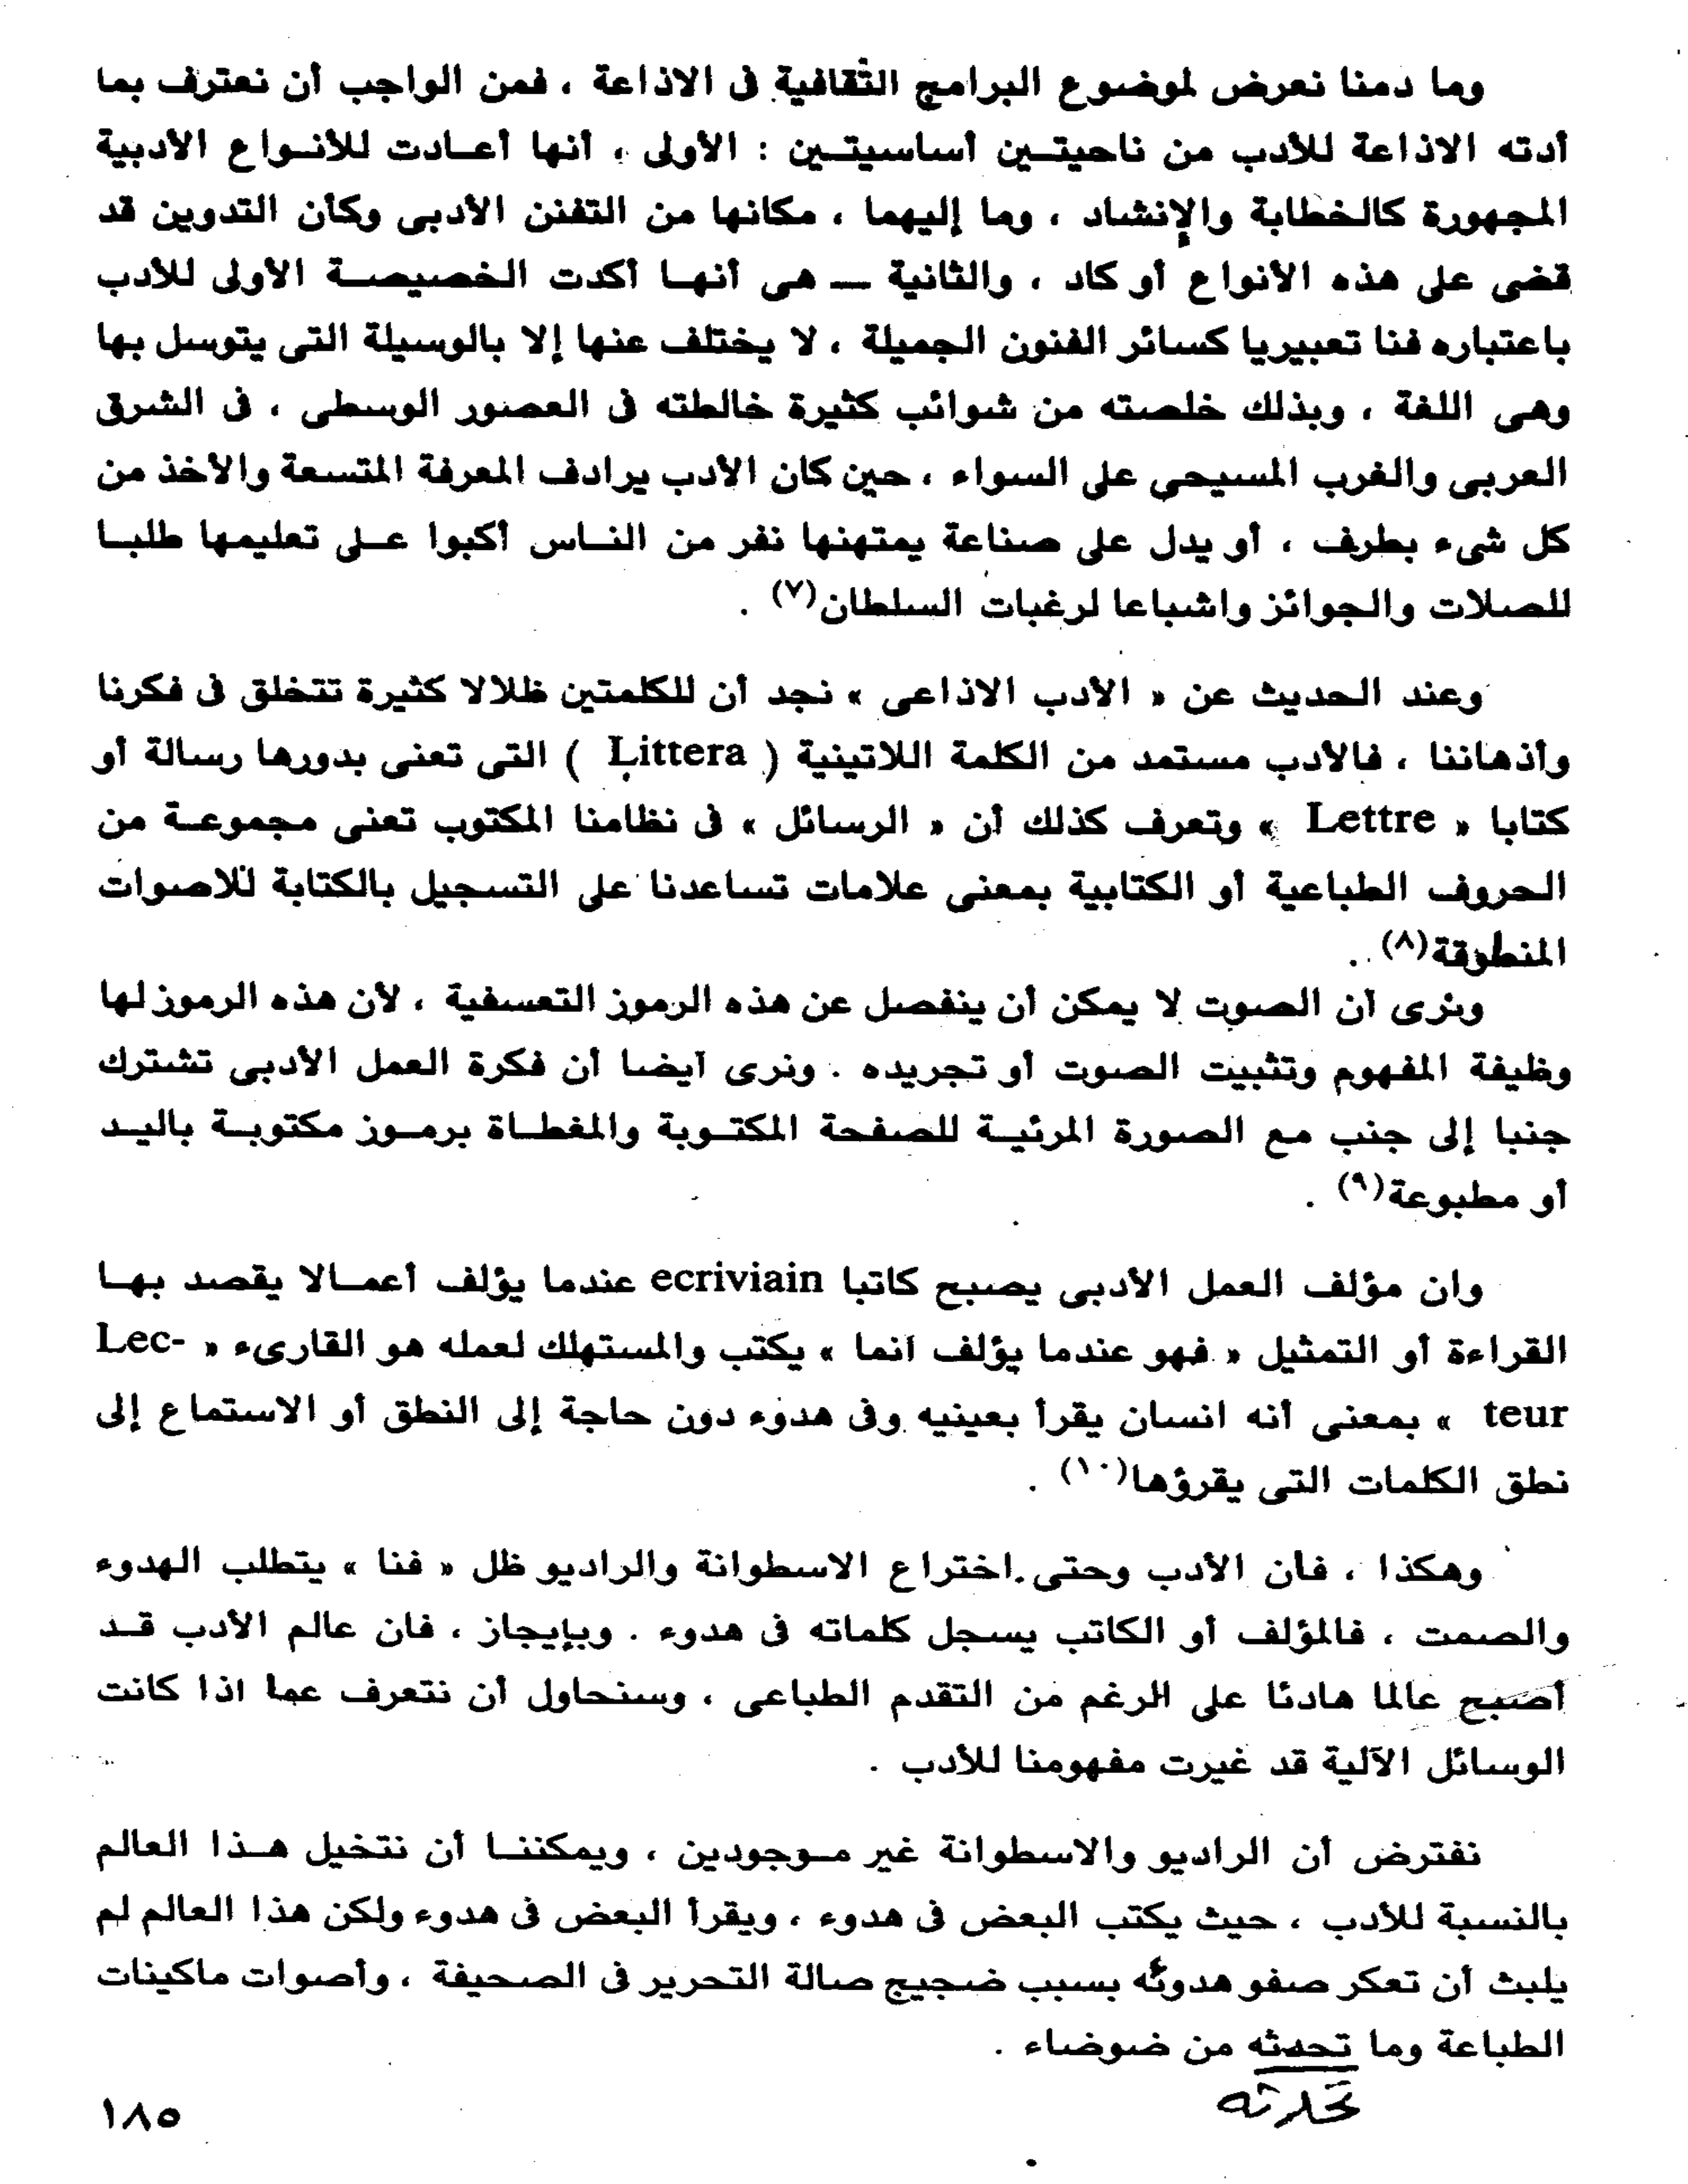 وما دمنا نعرض لموضوع البرامج الثقافية فى الاذاعة ، فمن الواجب أن نعترف بما
أدته الاذاعة للأدب من ناحيتـين أساسيتـين : الأولى ، أنها أعـادت للأنـواع الأدبية
المجهورة كالخطابة والإنشاد ، وما إليهما ، مكانها من التفنن الأدبى وكأن التدوين قد
قضى على هذه الأنواع أو كاد ، والثانية — هى أنهـا أكدت الخصيصـة الأولى للأدب
باعتباره فنا تعبيريا كسائر الفنون الجميلة ، لا يختلف عنها إلا بالوسيلة التى يتوسل بها
وهى اللغة ، وبذلك خلصته من شوائب كثيرة خالطته فى العصور الوسطى ، فى الشرق
العربى والغرب المسيحى على السواء ، حين كان الأدب يرادف المعرفة المتسعة والأخذ من
كل شىء بطرف ، أو يدل على صناعة يمتهنها نفر من النـاس أكبوا عـلى تعليمها طلبـا
للصلات والجوائز واشباعا لرغبات السلطان(٧) .
وعند الحديث عن « الأدب الاذاعى » نجد أن للكلمتين ظلالا كثيرة تتخلق فى فكرنا
وأذهاننا ، فالأدب مستمد من الكلمة اللاتينية ( Littera ) التى تعنى بدورها رسالة أو
كتابا « Lettre » وتعرف كذلك أن « الرسائل » فى نظامنا المكتوب تعنى مجموعـة من
الحروف الطباعية أو الكتابية بمعنى علامات تساعدنا على التسجيل بالكتابة للاصوات
المنطوقة(٨) .
ونرى أن الصوت لا يمكن أن ينفصل عن هذه الرموز التعسفية ، لأن هذه الرموز لها
وظيفة المفهوم وتثبيت الصوت أو تجريده . ونرى أيضا أن فكرة العمل الأدبى تشترك
جنبا إلى جنب مع الصورة المرئيـة للصفحة المكتـوبة والمغطـاة برمـوز مكتوبـة باليـد
أو مطبوعة(٩) .
وان مؤلف العمل الأدبى يصبح كاتبا ecriviain عندما يؤلف أعمـالا يقصد بهـا
القراءة أو التمثيل « فهو عندما يؤلف انما » يكتب والمستهلك لعمله هو القارىء « Lec-
teur » بمعنى أنه انسان يقرأ بعينيه وفى هدوء دون حاجة إلى النطق أو الاستماع إلى
نطق الكلمات التى يقرؤها(١٠) .
وهكذا ، فأن الأدب وحتى اختراع الاسطوانة والراديو ظل « فنا » يتطلب الهدوء
والصمت ، فالمؤلف أو الكاتب يسجل كلماته فى هدوء . وبإيجاز ، فان عالم الأدب قـد
أصبح عالما هادئا على الرغم من التقدم الطباعى ، وسنحاول أن نتعرف عما اذا كانت
الوسائل الآلية قد غيرت مفهومنا للأدب .
نفترض أن الراديو والاسطوانة غير مـوجودين ، ويمكننـا أن نتخيل هـذا العالم
بالنسبة للأدب ، حيث يكتب البعض فى هدوء ، ويقرأ البعض فى هدوء ولكن هذا العالم لم
يلبث أن تعكر صفو هدوئه بسبب ضجيج صالة التحرير فى الصحيفة ، وأصوات ماكينات
الطباعة وما تحدثه من ضوضاء .
تحدثه
١٨٥